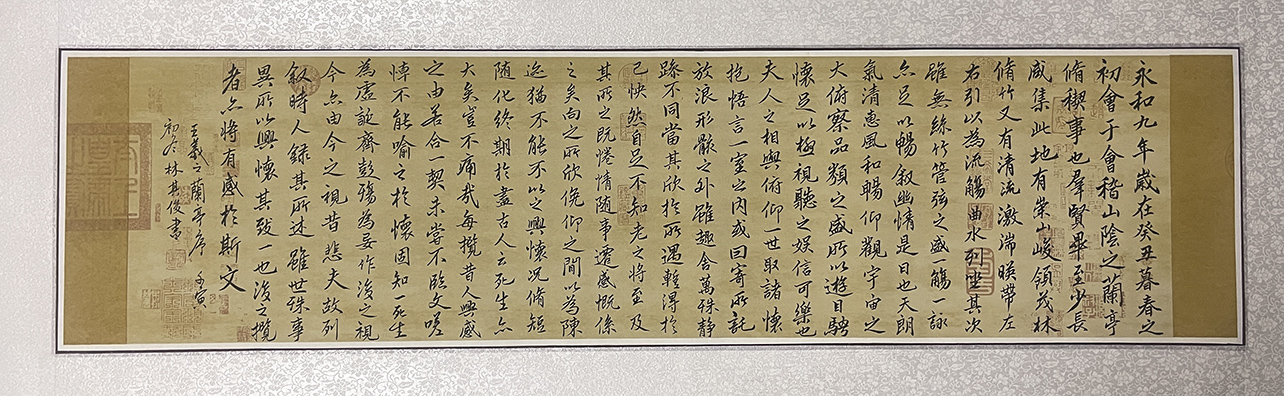 永和九年歲在癸丑暮春之
初會于會稽山陰之蘭亭
脩稧事也羣賢畢至少長
咸集此地有崇山峻領茂林
脩竹又有清流激湍暎帶左
右引以為流觴曲水列坐其次
雖無絲竹管弦之盛一觴一詠
亦足以暢叙幽情是日也天朗
氣清惠風和暢仰觀宇宙之
大俯察品類之盛所以遊目騁
懷足以極視聽之娛信可樂也
夫人之相與俯仰一世取諸懷
抱悟言一室之內或因寄所託
放浪形骸之外雖趣舍萬殊靜
躁不同當其欣於所遇暫得於
己快然自足不知老之將至及
其所之既惓情隨事遷感慨係
之矣向之所欣俛仰之間以為陳
迹猶不能不以之興懷況脩短
隨化終期於盡古人云死生亦
大矣豈不痛哉每攬昔人興感
之由若合一契未嘗不臨文嗟
悼不能喻之於懷固知一死生
為虛誕齊彭殤為妄作後之視
今亦由今之視昔悲夫故列
叙時人錄其所述雖世殊事
異所以興懷其致一也後之攬
者亦將有感於斯文
王羲之蘭亭序 壬寅
初冬林其俊書